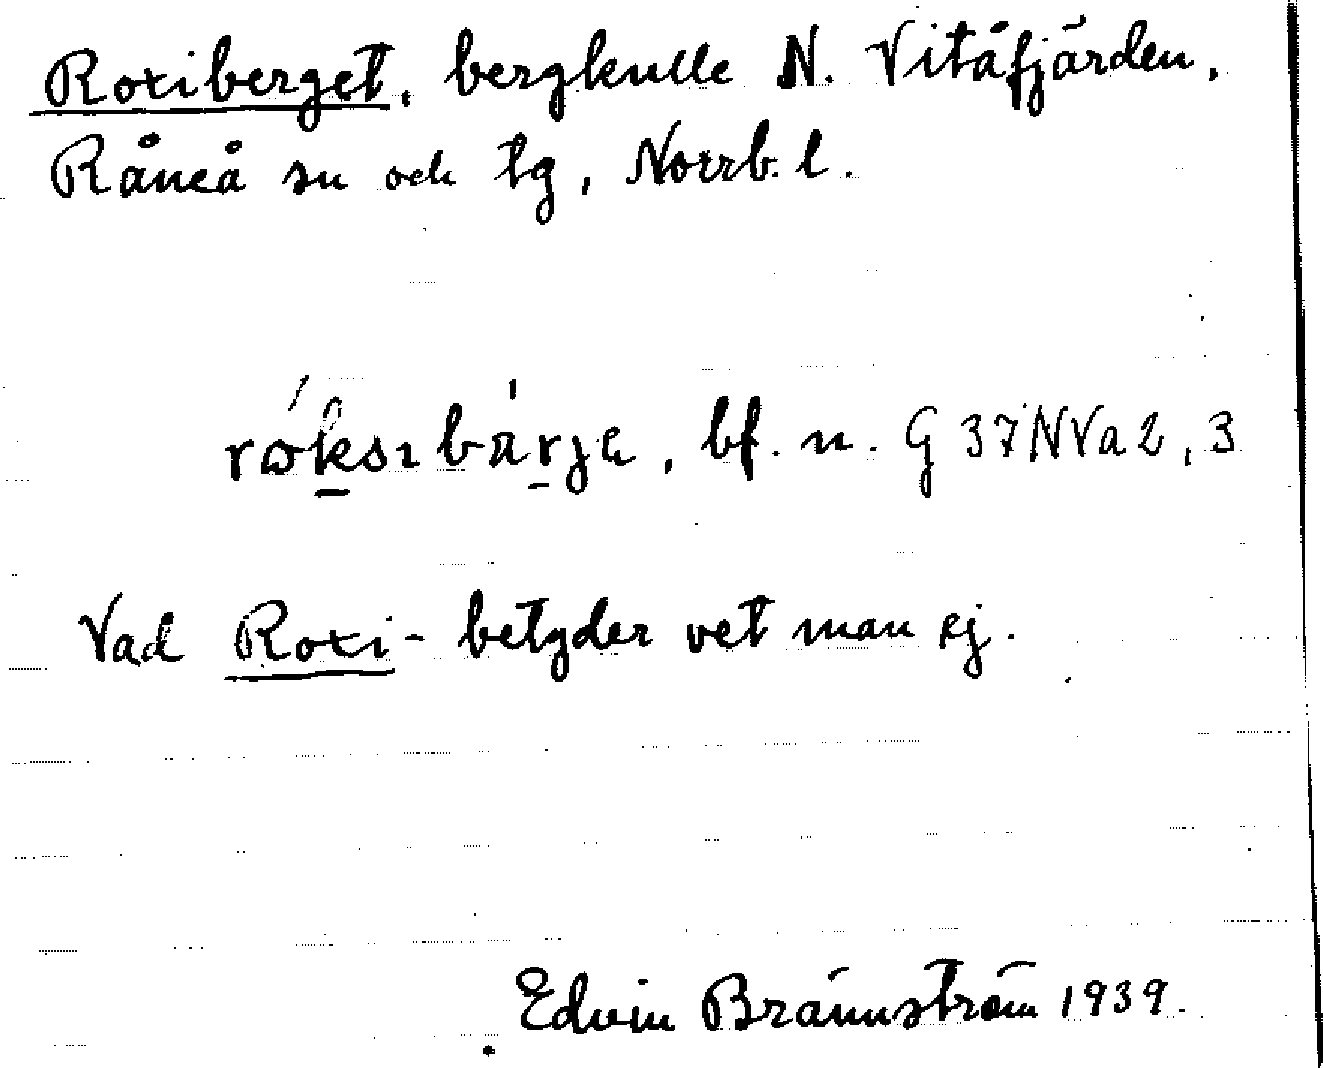 Roxiberget, bergkulle N. Vitåfjärden,
Råneå sn och tg, Norrb. l.
bf. n. G 37NVa2,3
Vad Roxi- betyder vet man ej.
Edvin Brännström 1939.